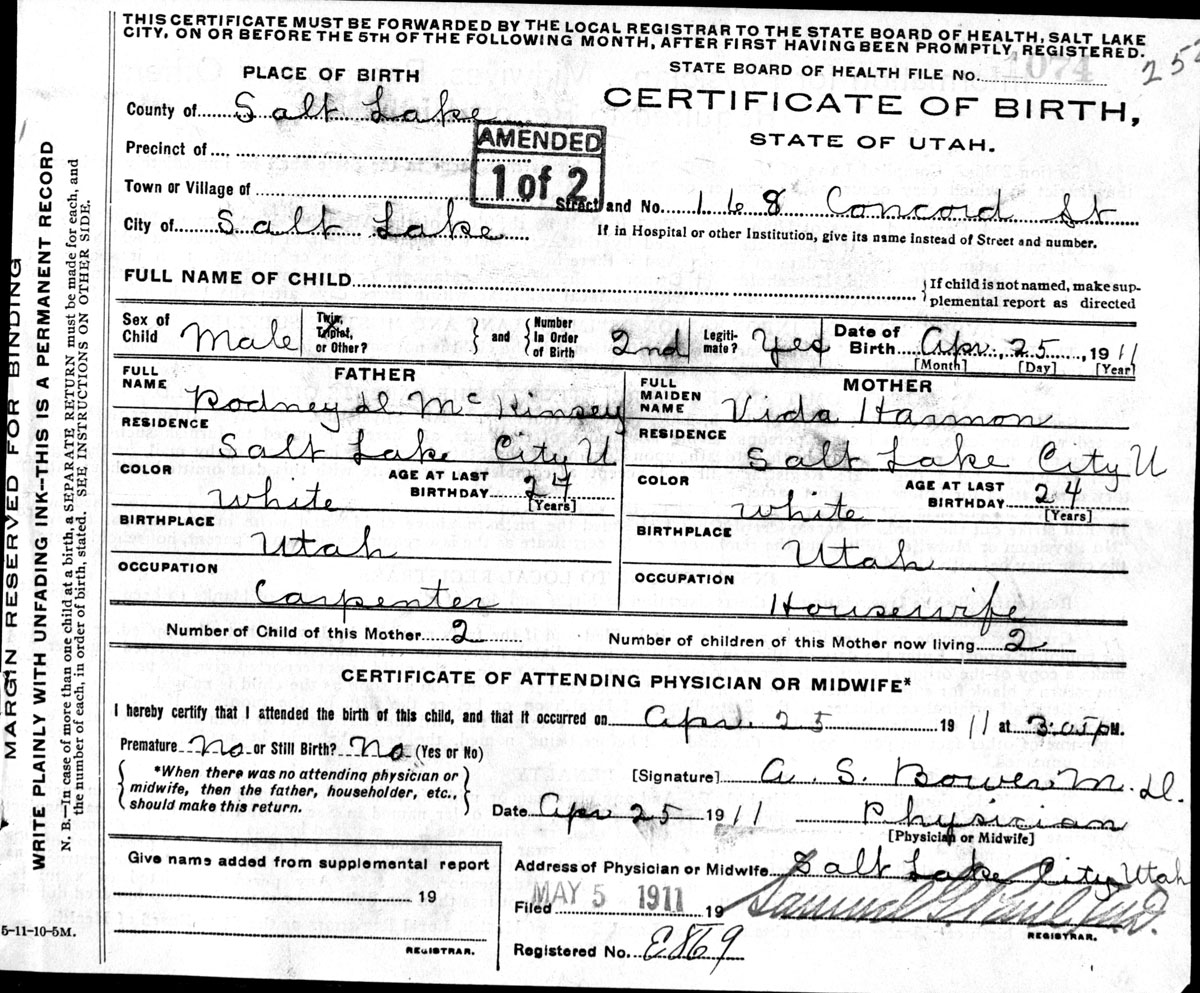 THIS CERTIFICATE MUST BE FORWARDED BY THE LOCAL REGISTRAR TO THE STATE BOARD OF HEALTH, SALT LAKE
CITY, ON OR BEFORE THE 5TH OF THE FOLLOWING MONTH, AFTER FIRST HAVING BEEN PROMPTLY REGISTERED.
PLACE OF BIRTH
STATE BOARD OF HEALTH FILE No. 1074
County of Salt Lake
CERTIFICATE OF BIRTH,
STATE OF UTAH.
AMENDED
1 of 2
Precinct of
Town or Village of
Street and No. 168 Concord St
City of Salt Lake
If in Hospital or other Institution, give its name instead of Street and number.
FULL NAME OF CHILD
If child is not named, make sup-
plemental report as directed
Sex of Child Male
Twin, Triplet, or Other?
and Number In Order of Birth 2nd
Legiti-mate? Yes
Date of Birth Apr. 25, 1911
[Month] [Day] [Year]
FATHER
FULL NAME
Rodney D. McKinsey
RESIDENCE
Salt Lake City U
COLOR White
AGE AT LAST BIRTHDAY 24
[Years]
BIRTHPLACE
Utah
OCCUPATION
Carpenter
MOTHER
FULL MAIDEN NAME Vida Harmon
RESIDENCE
Salt Lake City U
COLOR White
AGE AT LAST BIRTHDAY 24
[Years]
BIRTHPLACE
Utah
OCCUPATION
Housewife
Number of Child of this Mother 2
Number of children of this Mother now living 2
CERTIFICATE OF ATTENDING PHYSICIAN OR MIDWIFE*
I hereby certify that I attended the birth of this child, and that it occurred on Apr. 25 1911 at 3:05 P M.
Premature No or Still Birth? No (Yes or No)
*When there was no attending physician or
midwife, then the father, householder, etc.,
should make this return.
[Signature] A. S. Bower M.D.
Date Apr 25 1911 Physician
[Physician or Midwife]
Give name added from supplemental report
19
REGISTRAR.
Address of Physician or Midwife Salt Lake City, Utah
Filed MAY 5 1911 19 Samuel G. Paul M.D.
REGISTRAR.
Registered No. E869
MARGIN RESERVED FOR BINDING
WRITE PLAINLY WITH UNFADING INK--THIS IS A PERMANENT RECORD
N. B.--In case of more than one child at a birth, a SEPARATE RETURN must be made for each, and
the number of each, in order of birth, stated. SEE INSTRUCTIONS ON OTHER SIDE.
5-11-10-5M.